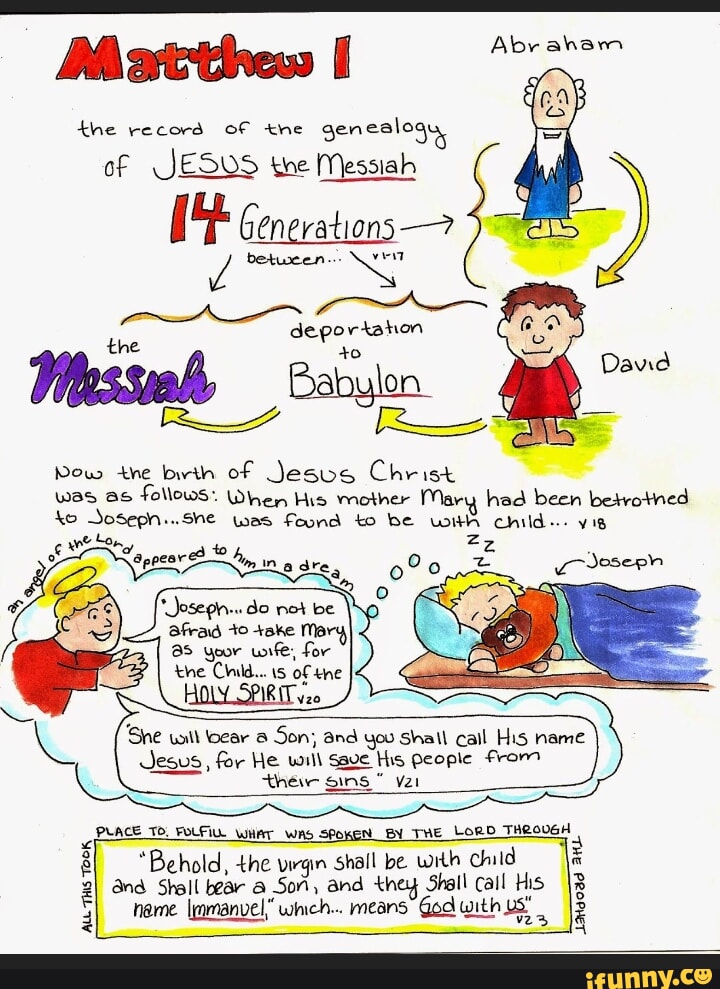 Matthew 1
Abraham
the record of the genealogy
of JESUS the Messiah
14 Generations
between... v1-17
the
Messiah
deportation
to
Babylon
David
Now the birth of Jesus Christ
was as follows: When His mother Mary had been betrothed
to Joseph...she was found to be with child... v18
z z
z
Joseph
an angel of the Lord appeared to him in a dream
"Joseph... do not be
afraid to take Mary
as your wife; for
the Child... is of the
HOLY SPIRIT" v20
"She will bear a Son; and you shall call His name
Jesus, for He will save His people from
their sins" v21
ALL THIS TOOK
PLACE TO FULFILL WHAT WAS SPOKEN BY THE LORD THROUGH
THE PROPHET
"Behold, the virgin shall be with child
and shall bear a Son, and they shall call His
name Immanuel," which... means "God with us"
v23
ifunny.co